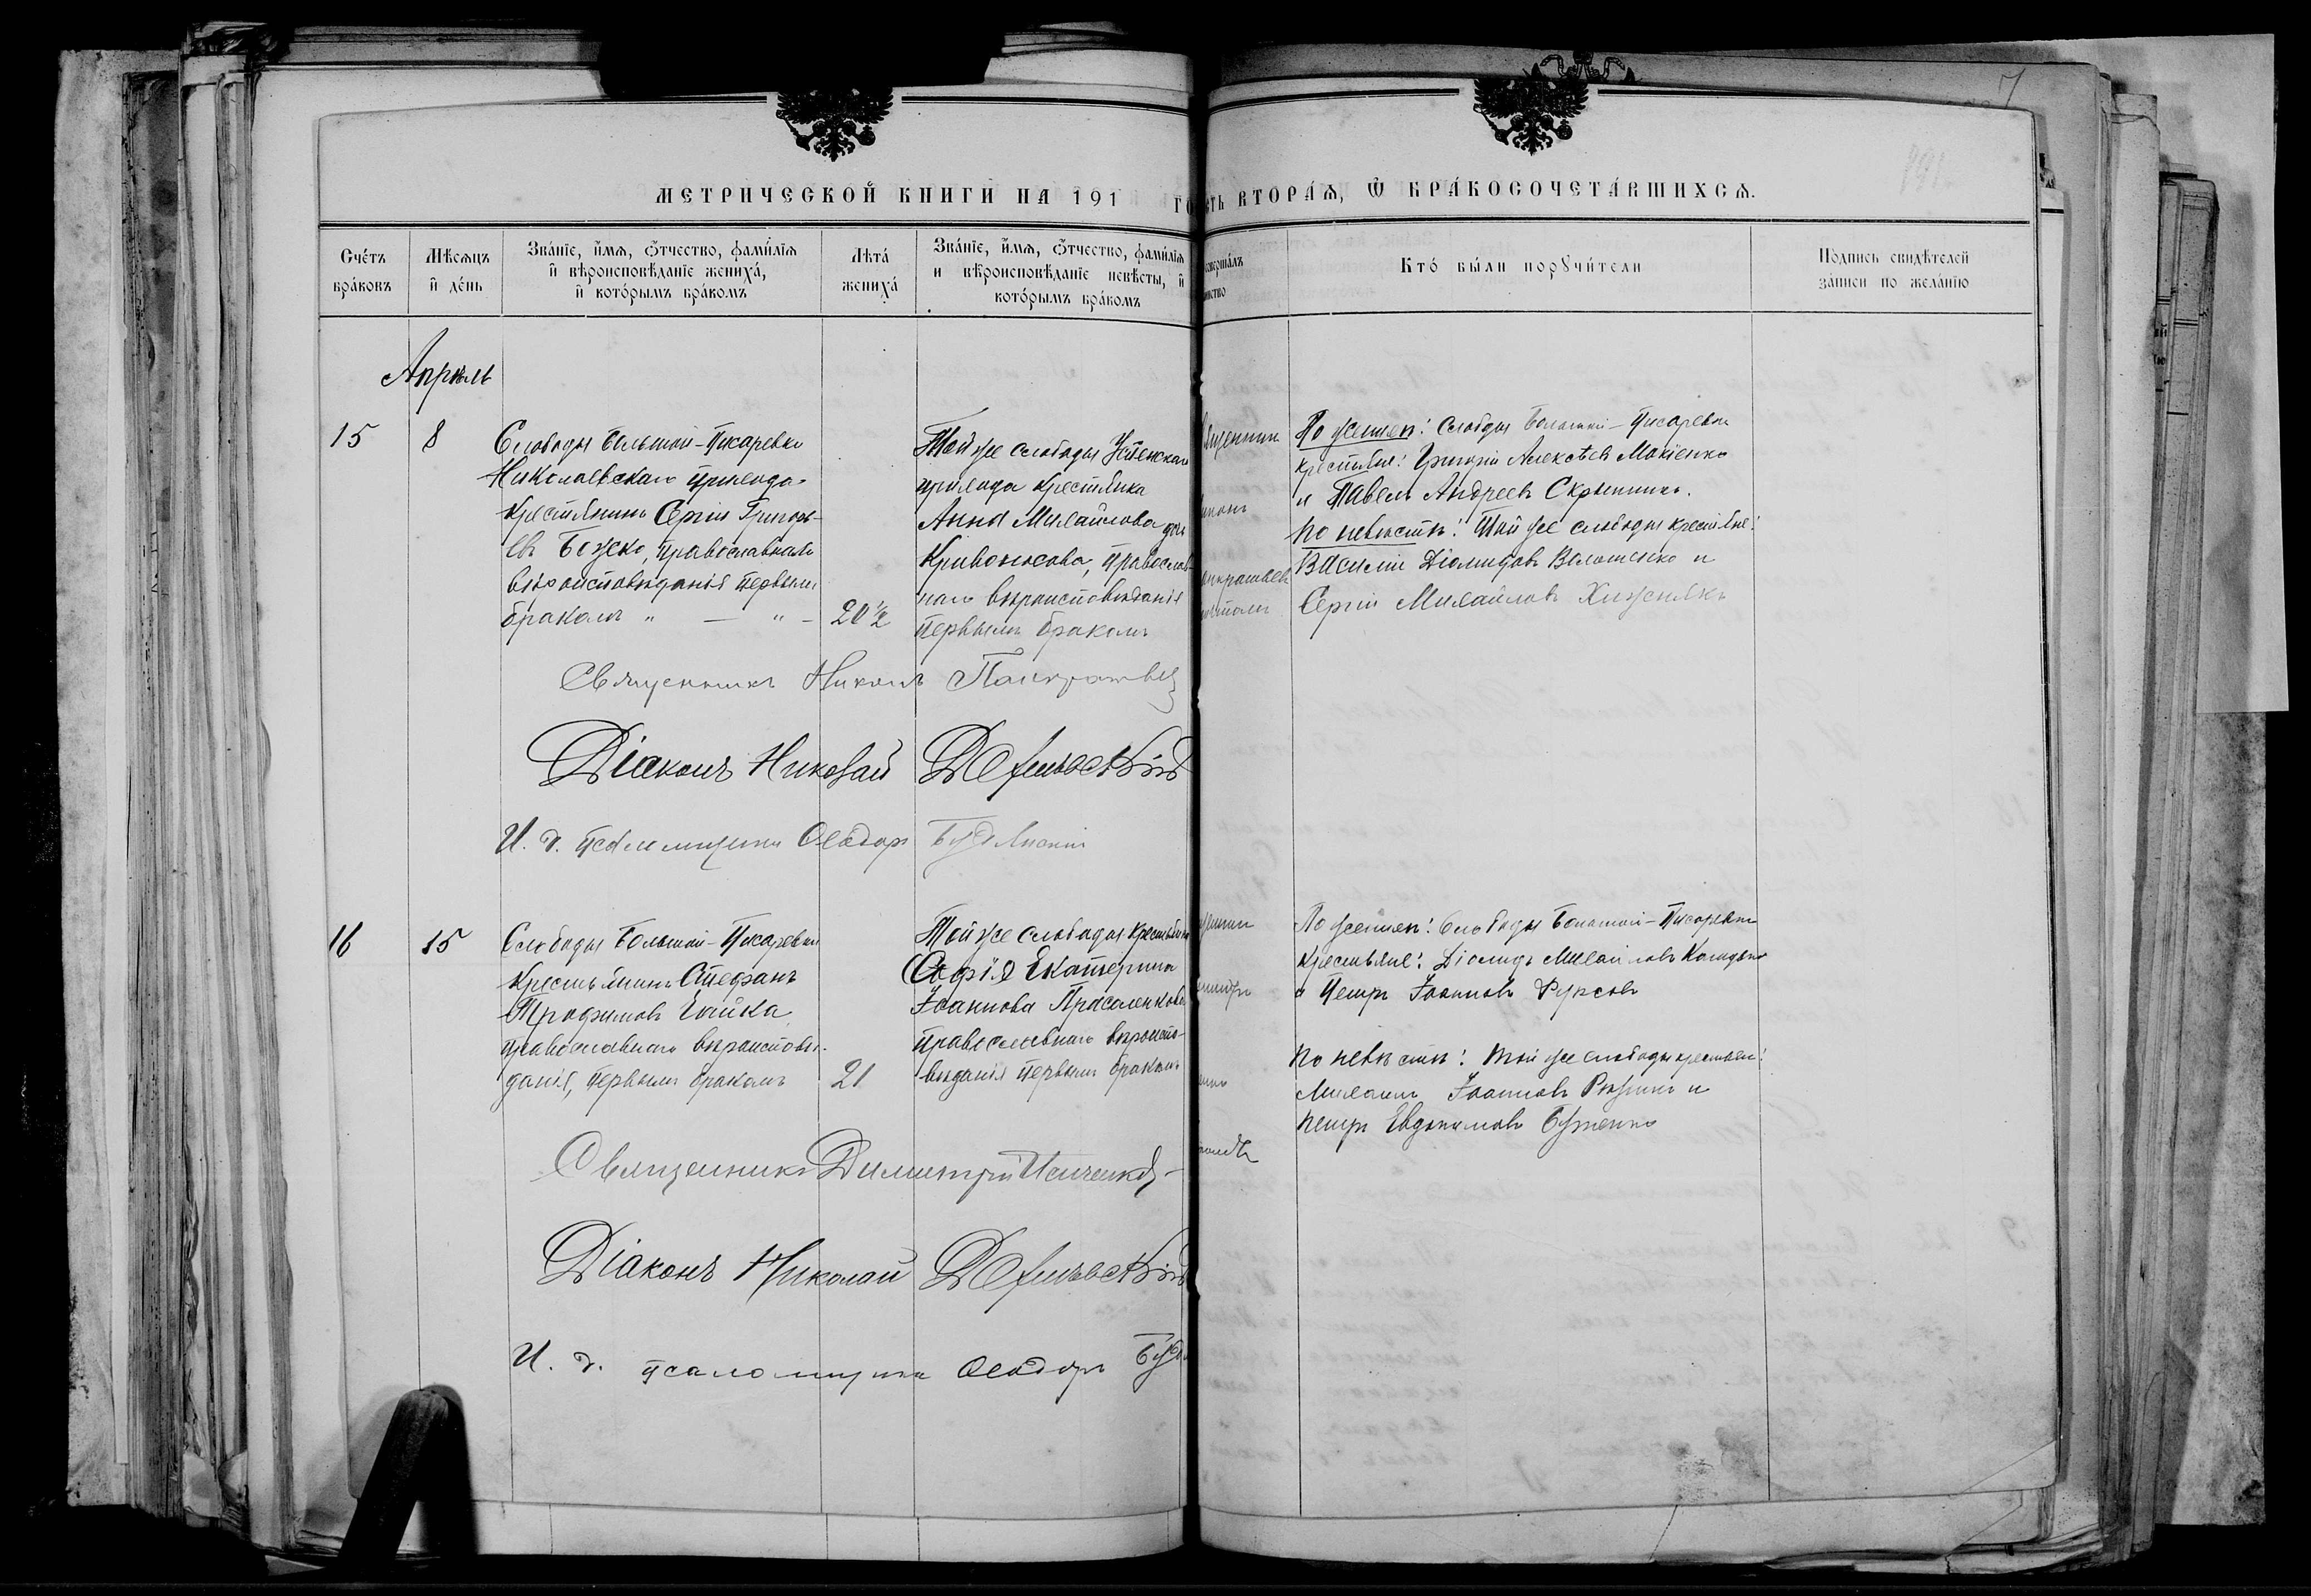 7
191
МЕТРИЧЕСКОЙ КНИГИ НА 191 ГО
СТЬ ВТОРАЯ, Ѿ БРАКОСОЧЕТАВШИХСЯ.
Счетъ браковъ
Мѣсяцъ и день
Званіе, имя, отчество, фамилія и вѣроисповѣданіе жениха, и которымъ бракомъ
Лѣта жениха
Званіе, имя, отчество, фамилія и вѣроисповѣданіе невѣсты, и которымъ бракомъ
Кто были поручители
Подпись свидѣтелей записи по желанію
Апрѣль
15
8
Слободы Большой-Писаревки
Николаевскаго прихода
крестьянинъ Сергій Григорь-
евъ Божко, православнаго
вѣроисповѣданія первымъ
бракомъ " — " —
20½
Той же слободы Успенскаго
прихода крестьянка
Анна Михайлова дочь
Кривоносова, православ-
наго вѣроисповѣданія
первымъ бракомъ
По женихѣ: слободы Большой-Писаревки
крестьяне: Григорій Алексѣевъ Мокіенко
и Павелъ Андреевъ Скрынникъ.
По невѣстѣ: Той же слободы крестьяне:
Василій Діомидовъ Волошенко и
Сергій Михайловъ Хижнякъ
Священникъ Николай Панкратьевъ
Діаконъ Николай
И. д. псаломщика Ѳеодоръ
16
15
Слободы Большой-Писаревки
крестьянинъ Стефанъ
Трофимовъ Гайка
православнаго вѣроисповѣ-
данія, первымъ бракомъ
21
Той же слободы крестьянка
Екатерина
Іоаннова Прасоленкова
православнаго вѣроиспо-
вѣданія первымъ бракомъ
По женихѣ: Слободы Большой-Писаревки
крестьяне: Діомидъ Михайловъ
и Петръ Іоанновъ Фурсовъ
По невѣстѣ: той же слободы крестьяне:
Михаилъ Іоанновъ и
Петръ Евдокимовъ
Священникъ Димитрій
Діаконъ Николай
И. д. псаломщика Ѳеодоръ